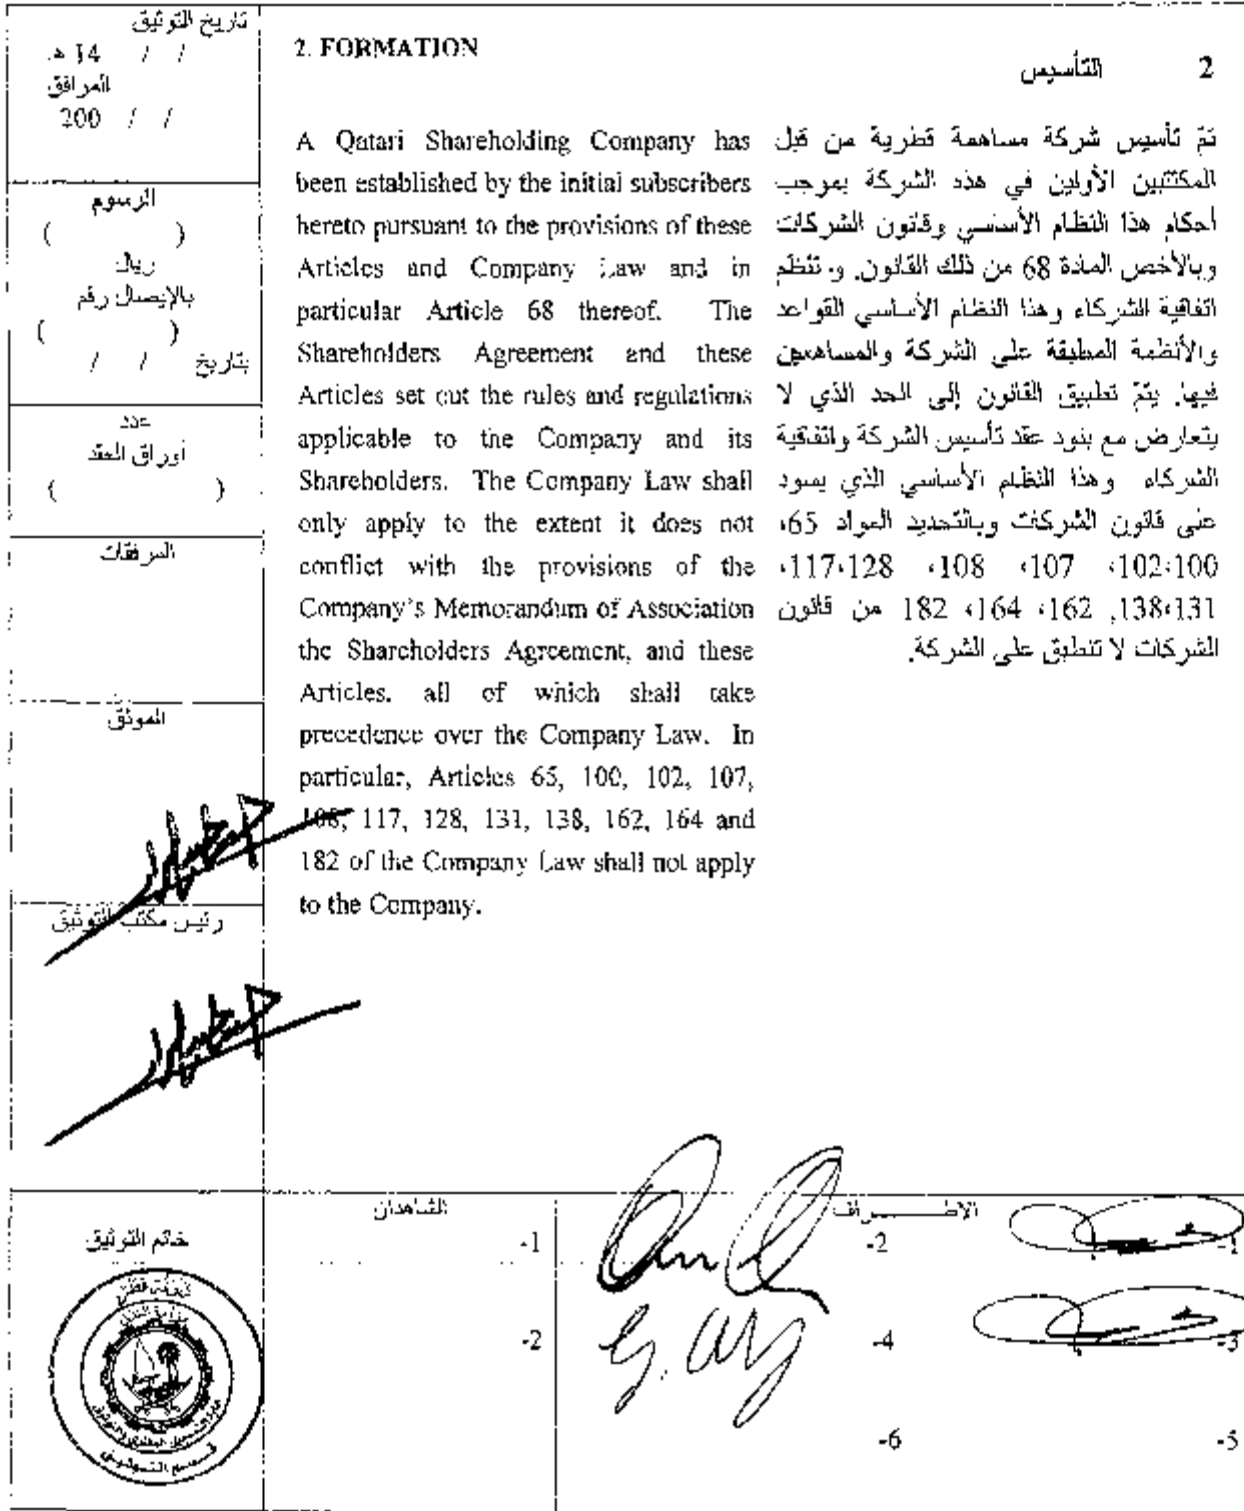 تاريخ التوثيق
/ / 14 هـ
الموافق
/ / 200
الرسوم
( )
ريال
بالإيصال رقم
( )
بتاريخ / /
عدد
أوراق العقد
( )
المرفقات
الموثق
رئيس مكتب التوثيق
2. FORMATION
A Qatari Shareholding Company has
been established by the initial subscribers
hereto pursuant to the provisions of these
Articles and Company Law and in
particular Article 68 thereof. The
Shareholders Agreement and these
Articles set out the rules and regulations
applicable to the Company and its
Shareholders. The Company Law shall
only apply to the extent it does not
conflict with the provisions of the
Company's Memorandum of Association
the Shareholders Agreement, and these
Articles, all of which shall take
precedence over the Company Law. In
particular, Articles 65, 100, 102, 107,
108, 117, 128, 131, 138, 162, 164 and
182 of the Company Law shall not apply
to the Company.
2 التأسيس
تمّ تأسيس شركة مساهمة قطرية من قبل
المكتتبين الأولين في هذه الشركة بموجب
أحكام هذا النظام الأساسي وقانون الشركات
وبالأخص المادة 68 من ذلك القانون. و تنظم
اتفاقية الشركاء وهذا النظام الأساسي القواعد
والأنظمة المطبقة على الشركة والمساهمين
فيها. يتمّ تطبيق القانون إلى الحد الذي لا
يتعارض مع بنود عقد تأسيس الشركة واتفاقية
الشركاء وهذا النظام الأساسي الذي يسود
على قانون الشركات وبالتحديد المواد 65،
100،102، 107، 108، 128،117،
131،138, 162، 164، 182 من قانون
الشركات لا تنطبق على الشركة.
خاتم التوثيق
الشاهدان
-1
-2
الاطـــــراف
-1
-2
-3
-4
-5
-6